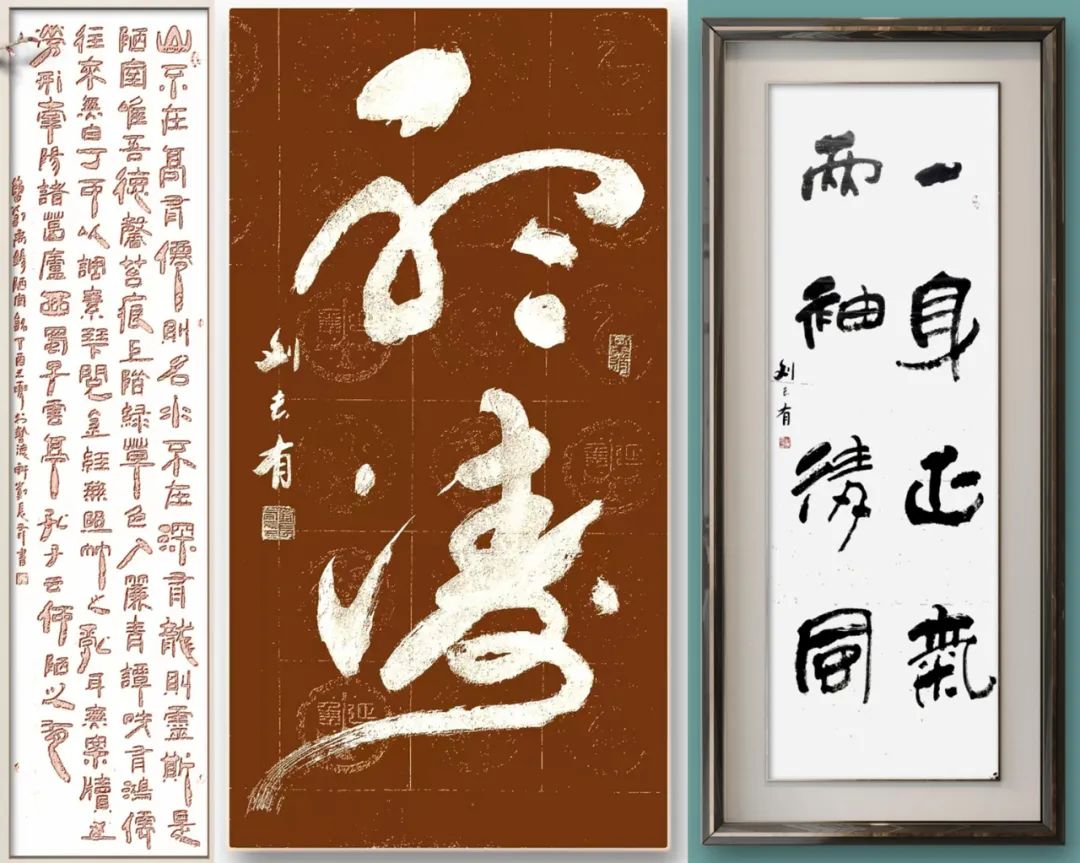 山不在高有僊則名水不在深有龍則靈斯是
陋室唯吾德馨苔痕上階緑草色入簾青譚咲有鴻儒
往來無白丁可以調素琴閲金經無絲竹之亂耳無案牘之
勞形南陽諸葛廬西蜀子雲亭孔子云何陋之有
唐劉禹錫陋室銘丁酉
听濤
刘长有
一身正氣
兩袖清風
刘长有